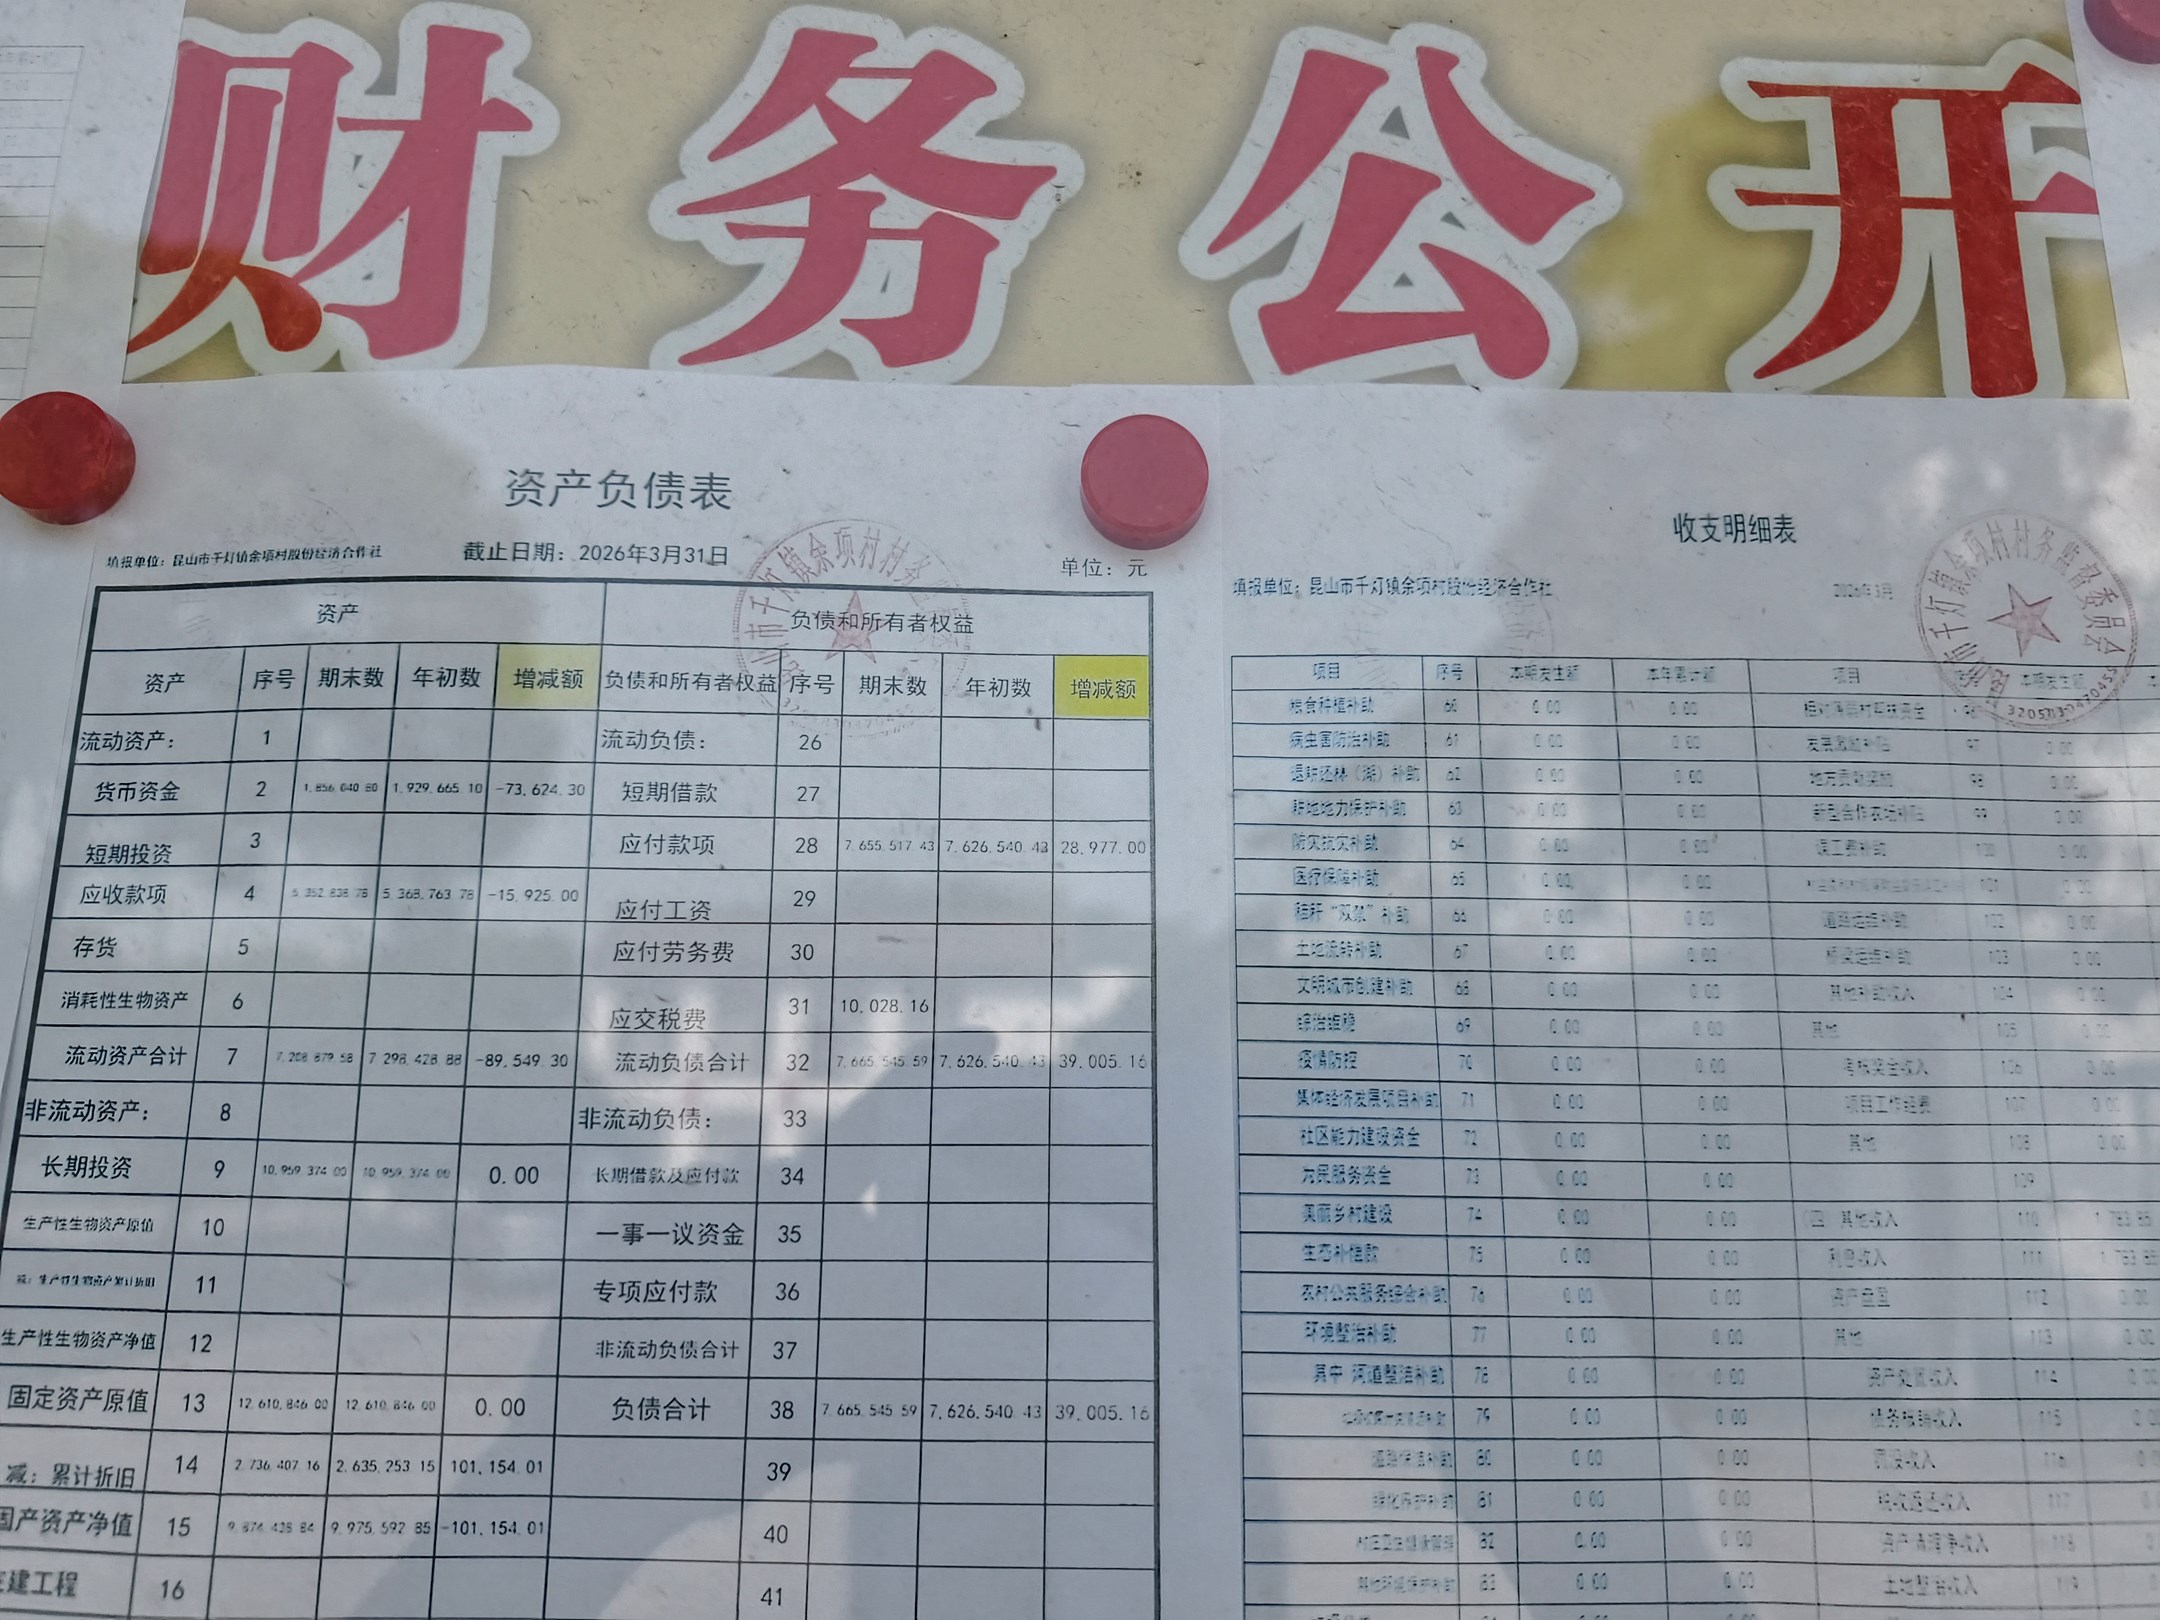 财务公开
资产负债表
填报单位：昆山市千灯镇余项村股份经济合作社 截止日期：2026年3月31日 单位：元
资产 负债和所有者权益
资产 序号 期末数 年初数 增减额 负债和所有者权益 序号 期末数 年初数 增减额
流动资产： 1 流动负债： 26
货币资金 2 1,856,040.80 1,929,665.10 -73,624.30 短期借款 27
短期投资 3 应付款项 28 7,655,517.43 7,626,540.43 28,977.00
应收款项 4 5,352,838.78 5,368,763.78 -15,925.00 应付工资 29
存货 5 应付劳务费 30
消耗性生物资产 6 应交税费 31 10,028.16
流动资产合计 7 7,208,879.58 7,298,428.88 -89,549.30 流动负债合计 32 7,665,545.59 7,626,540.43 39,005.16
非流动资产： 8 非流动负债： 33
长期投资 9 10,959,374.00 10,959,374.00 0.00 长期借款及应付款 34
生产性生物资产原值 10 一事一议资金 35
减：生产性生物资产累计折旧 11 专项应付款 36
生产性生物资产净值 12 非流动负债合计 37
固定资产原值 13 12,610,846.00 12,610,846.00 0.00 负债合计 38 7,665,545.59 7,626,540.43 39,005.16
减：累计折旧 14 2,736,407.16 2,635,253.15 101,154.01 39
固产资产净值 15 9,975,592.85 -101,154.01 40
建工程 16 41
收支明细表
填报单位：昆山市千灯镇余项村股份经济合作社 2026年3月
市千灯镇余项村村务监督委员会
项目 序号 本期发生额 本年累计额 项目 本期发生额
粮食种植补助 60 0.00 0.00
病虫害防治补助 61 0.00 0.00 发展激励补贴 97 0.00
退耕还林（湖）补助 62 0.00 0.00 地方贡献奖励 98 0.00
耕地地力保护补助 63 0.00 0.00 新型合作农场补贴 99 0.00
防灾抗灾补助 64 0.00 0.00 误工费补助 100 0.00
医疗保障补助 65 0.00 0.00 101 0.00
秸秆“双禁”补助 66 0.00 0.00 道路运维补助 102 0.00
土地流转补助 67 0.00 0.00 桥梁运维补助 103 0.00
文明城市创建补助 68 0.00 0.00 其他补助收入 104 0.00
综治维稳 69 0.00 0.00 其他 105 0.00
疫情防控 70 0.00 0.00 考核奖金收入 106 0.00
集体经济发展项目补助 71 0.00 0.00 项目工作经费 107 0.00
社区能力建设资金 72 0.00 0.00 其他 108 0.00
为民服务资金 73 0.00 0.00 109
美丽乡村建设 74 0.00 0.00 （四）其他收入 110 1,783.85
生态补偿款 75 0.00 0.00 利息收入 111 1,783.85
农村公共服务综合补助 76 0.00 0.00 资产盘盈 112 0.00
环境整治补助 77 0.00 0.00 其他 113 0.00
其中 河道整洁补助 78 0.00 0.00 资产处置收入 114 0.00
79 0.00 0.00 债务核销收入 115
道路保洁补助 80 0.00 0.00 罚没收入 116
绿化养护补助 81 0.00 0.00 税收返还收入 117
82 0.00 0.00 118
其他环境保护补助 83 0.00 0.00 119